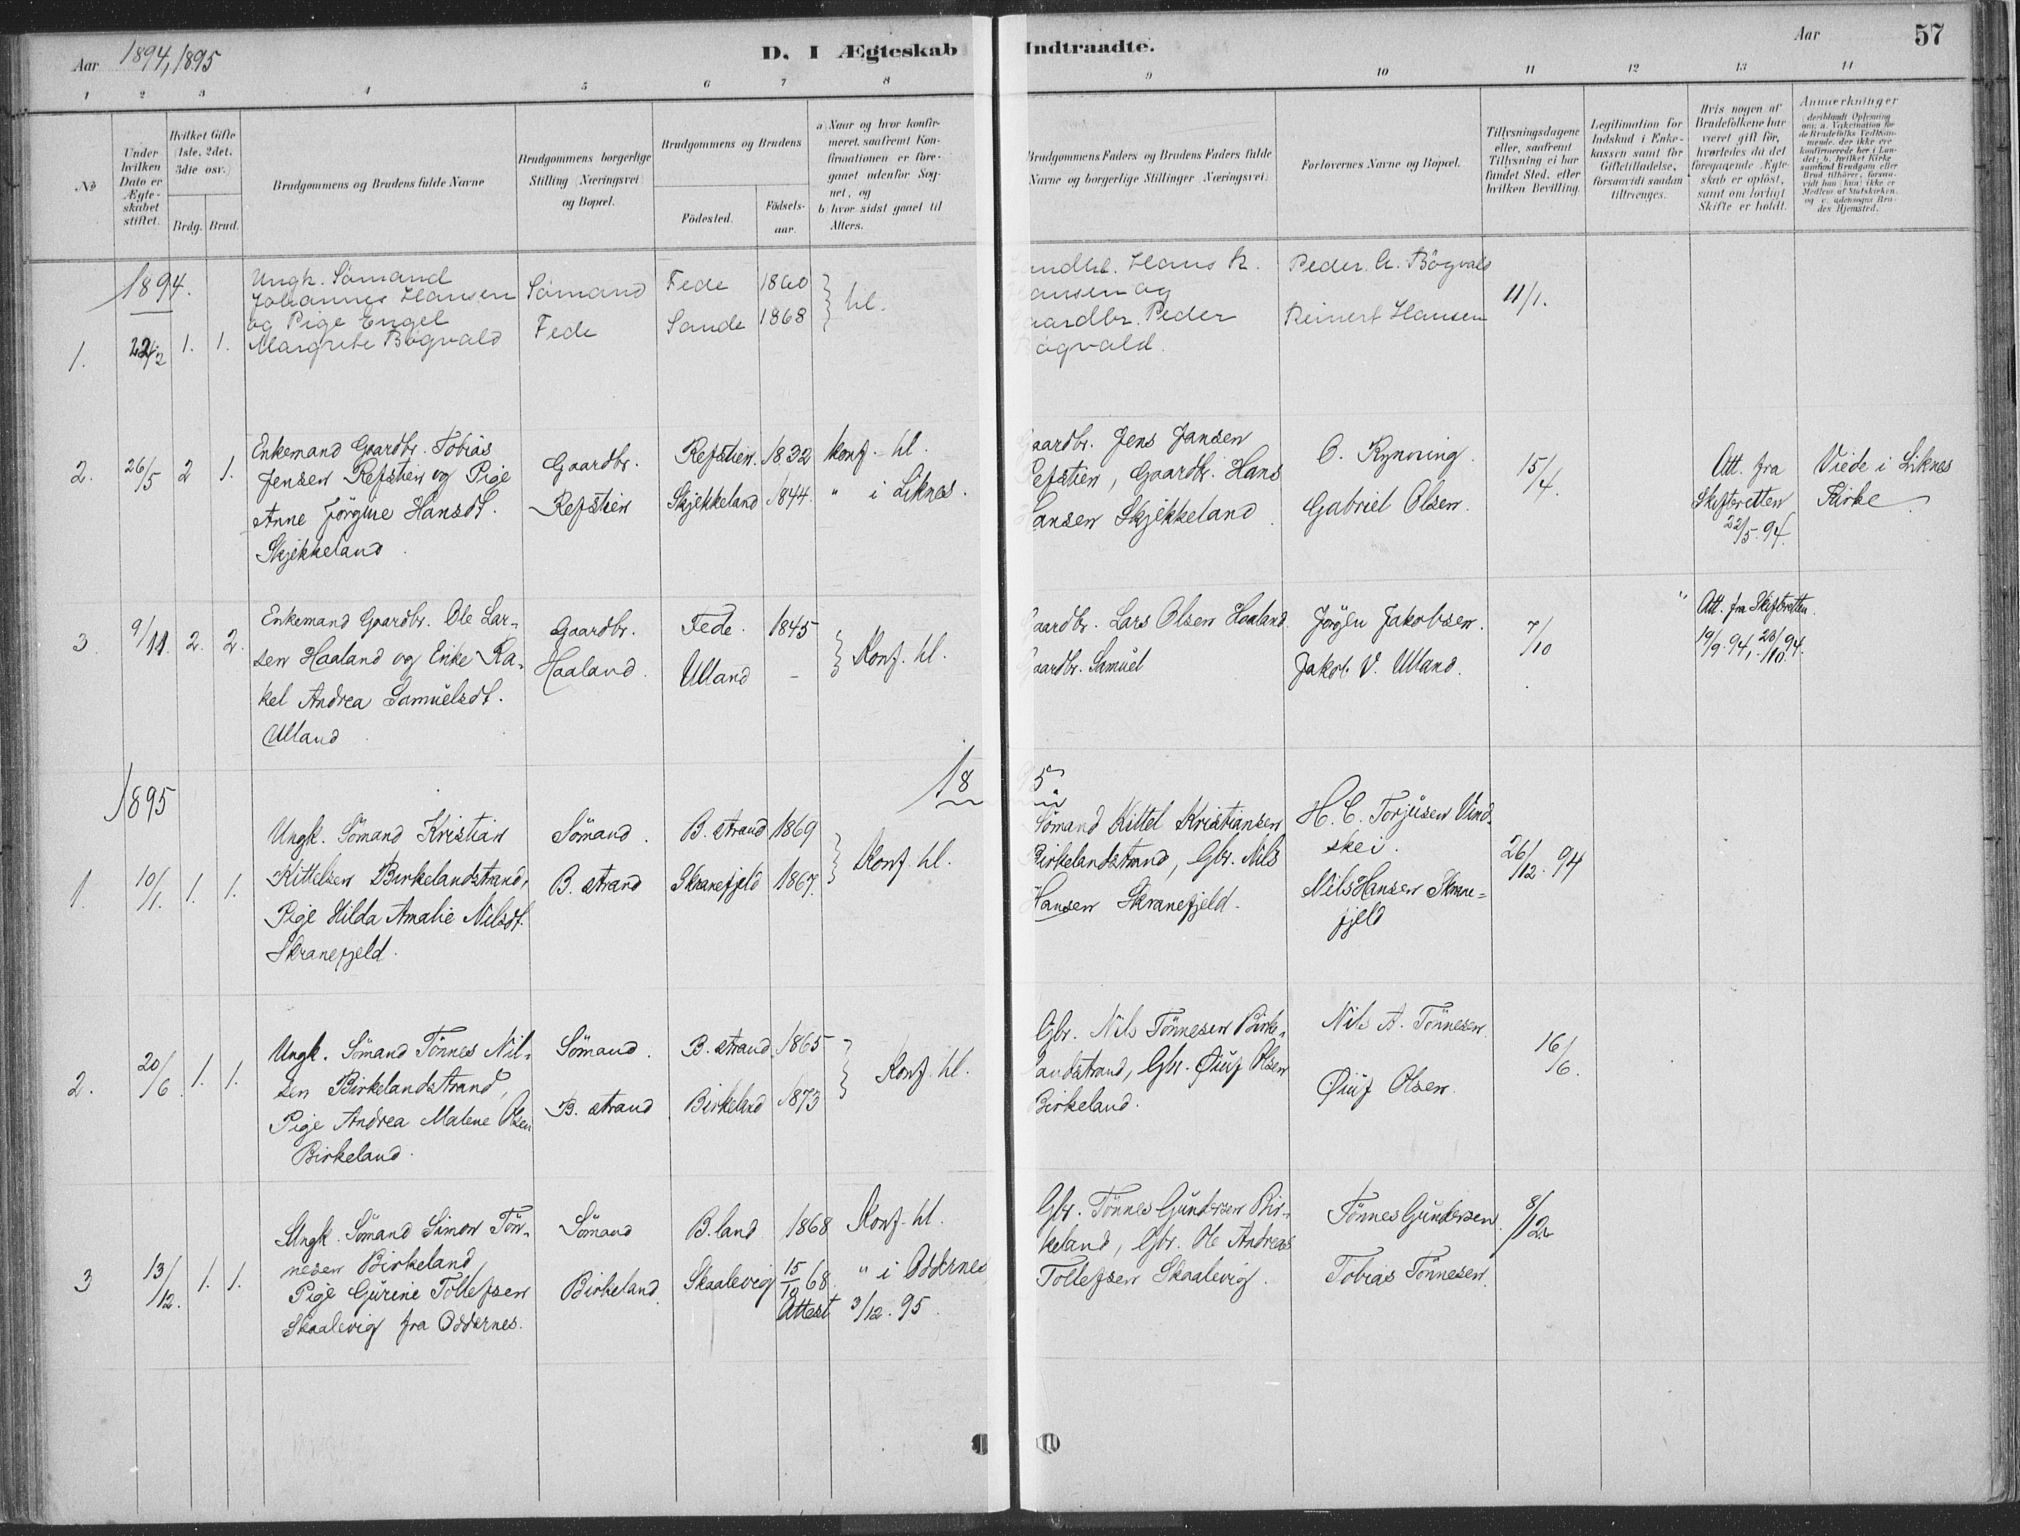 Aar 1894, 1895
D. I Ægteskab Indtraadte.
Aar
57
1 2 3 4 5 6 7 8 9 10 11 12 13 14
No
Under hvilken Dato er Ægteskabet stiftet.
Hvilket Gifte (1ste, 2det, 3die osv.)
Brdg. Brud.
Brudgommens og Brudens fulde Navne
Brudgommens borgerlige Stilling (Næringsvei) og Bopæl.
Brudgommens og Brudens
Födested.
Födselsaar.
a) Naar og hvor konfirmeret, saafremt Konfirmationen er foregaaet udenfor Sognet, og
b) hvor sidst gaaet til Alters.
Brudgommens Faders og Brudens Faders fulde Navne og borgerlige Stillinger (Næringsvei)
Forlovernes Navne og Bopæl.
Tillysningsdagene eller, saafremt Tillysning ei har fundet Sted, efter hvilken Bevilling.
Legitimation for Indskud i Enkekassen samt for Giftetilladelse, forsaavidt saadan tiltrænges.
Hvis nogen af Brudefolkene har været gift før, hvorledes da det foregaaende Ægteskab er opløst, samt om lovligt Skifte er holdt.
Anmærkninger
deriblandt Oplysning om: a. Vakcination for de Brudefolks Vedkommende, der ikke ere konfirmerede her i Landet; b. hvilket Kirkesamfund Brudgom eller Brud tilhører, forsaavidt han (hun) ikke er Medlem af Statskirken, og c. udensogns Brudes Hjemsted.
1894.
1. 22/2 1. 1.
Ungk. Sömand
Johannes Hansen
og Pige Engel
Margrete Bøgvald
Sömand
Fede
Fede 1860
Sande 1868
hl.
Landhl. Hans R.
Hansen og
Gaardbr. Peder
Bøgvald.
Peder A. Bøgvald
Reinert Hansen
11/1.
2. 26/5 2 1.
Enkemand Gaardbr. Tobias
Jensen Refstien og Pige
Anne Jörgine Hansdt.
Skjekkeland
Gaardbr.
Refstien
Refstien. 1832
Skjekkeland 1844.
konf. hl.
" i Liknes.
Gaardbr. Jens Jansen
Refstien, Gaardbr. Hans
Hansen Skjekkeland
O. Rynning.
Gabriel Olsen.
15/4.
Att. fra
Skifteretten
22/5. 94.
Viede i Liknes
Kirke
3. 9/11. 2. 2.
Enkemand Gaardbr. Ole Lar-
sen Haaland og Enke Ra-
kel Andrea Samuelsdt.
Ulland
Gaardbr.
Haaland.
Fede. 1845
Ulland -
Konf. hl.
Gaardbr. Lars Olsen Haaland
Gaardbr. Samuel
Jörgen Jakobsen.
Jakob V. Ulland.
7/10
" Att. fra Skifteretten.
19/9. 94, 23/10 94.
1895
1895
1. 10/1. 1. 1.
Ungk. Sömand Kristian
Kittelsen Birkelandstrand,
Pige Hilda Amalie Nilsdt.
Skranefjeld.
Sömand.
B. strand
B. strand 1869
Skranefjeld 1867.
Konf. hl.
Sömand Kittel Kristiansen
Birkelandstrand, Gbr. Nils
Hansen Skranefjeld.
H. C. Torjusen Vind-
skei.
Nils Hansen Skrane-
fjeld
26/12. 94
2. 20/6 1. 1.
Ungk. Sömand Tönnes Nil-
sen Birkelandstrand,
Pige Andrea Malene Olsen
Birkeland.
Sömand.
B. strand
B. strand 1865
Birkeland 1873
Konf. hl.
Gbr. Nils Tönnesen Birke-
landstrand, Gbr. Øiuf Olsen
Birkeland.
Nils A. Tönnesen
Øiuf Olsen.
16/6.
3 13/12. 1. 1.
Ungk. Sömand Simon Tön-
nesen Birkeland
Pige Gurine Tollefsen
Skaalevig fra Oddernes.
Sömand
Birkeland.
B.land 1868
Skaalevig 15/10 68.
Attest 3/12. 95.
Konf. hl.
" i Oddernes
Gbr. Tönnes Gundersen Bir-
keland, Gbr. Ole Andreas
Tollefsen Skaalevig.
Tönnes Gundersen.
Tobias Tönnesen.
8/12